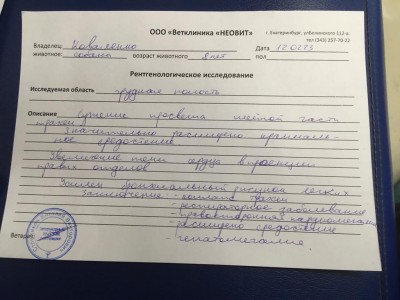 ООО «Ветклиника «НЕОВИТ»
г. Екатеринбург, ул.Белинского 112-а
тел (343) 257-70-22
Владелец Коваленко Дата 12.02.15
животное: собака возраст животного 8 лет пол
Рентгенологическое исследование
Исследуемая область грудная полость
Описание Сужение просвета шейной части
трахеи
Значительно расширено краниаль-
ное средостение
Увеличение тени сердца в проекции
правых отделов
Усилен бронхиальный рисунок легких
Заключение: - коллапс трахеи
- респираторное заболевание
- правосторонняя кардиомегалия
- расширено средостение
- гепатомегалия